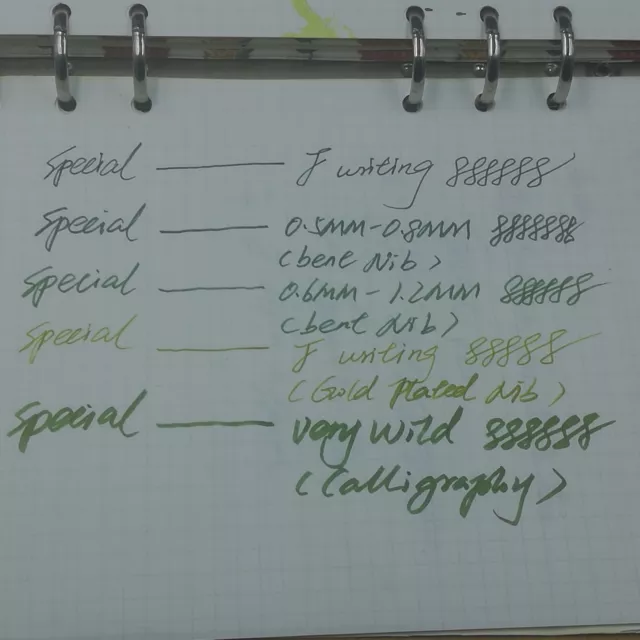 Special — F writing 8888888
Special — 0.5MM-0.8MM 8888888
(bent Nib)
Special — 0.6MM-1.2MM 8888888
(bent Nib)
Special — F writing 88888
(Gold Plated Nib)
Special — very wild 8888888
(Calligraphy)